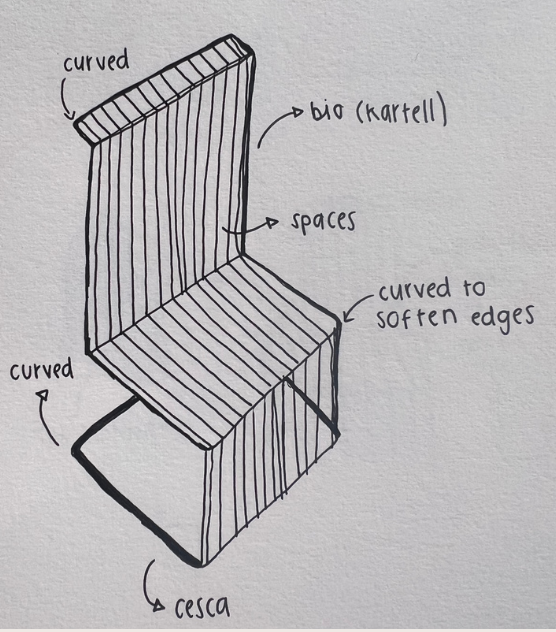 curved
bio (kartell)
spaces
curved to
soften edges
curved
cesca